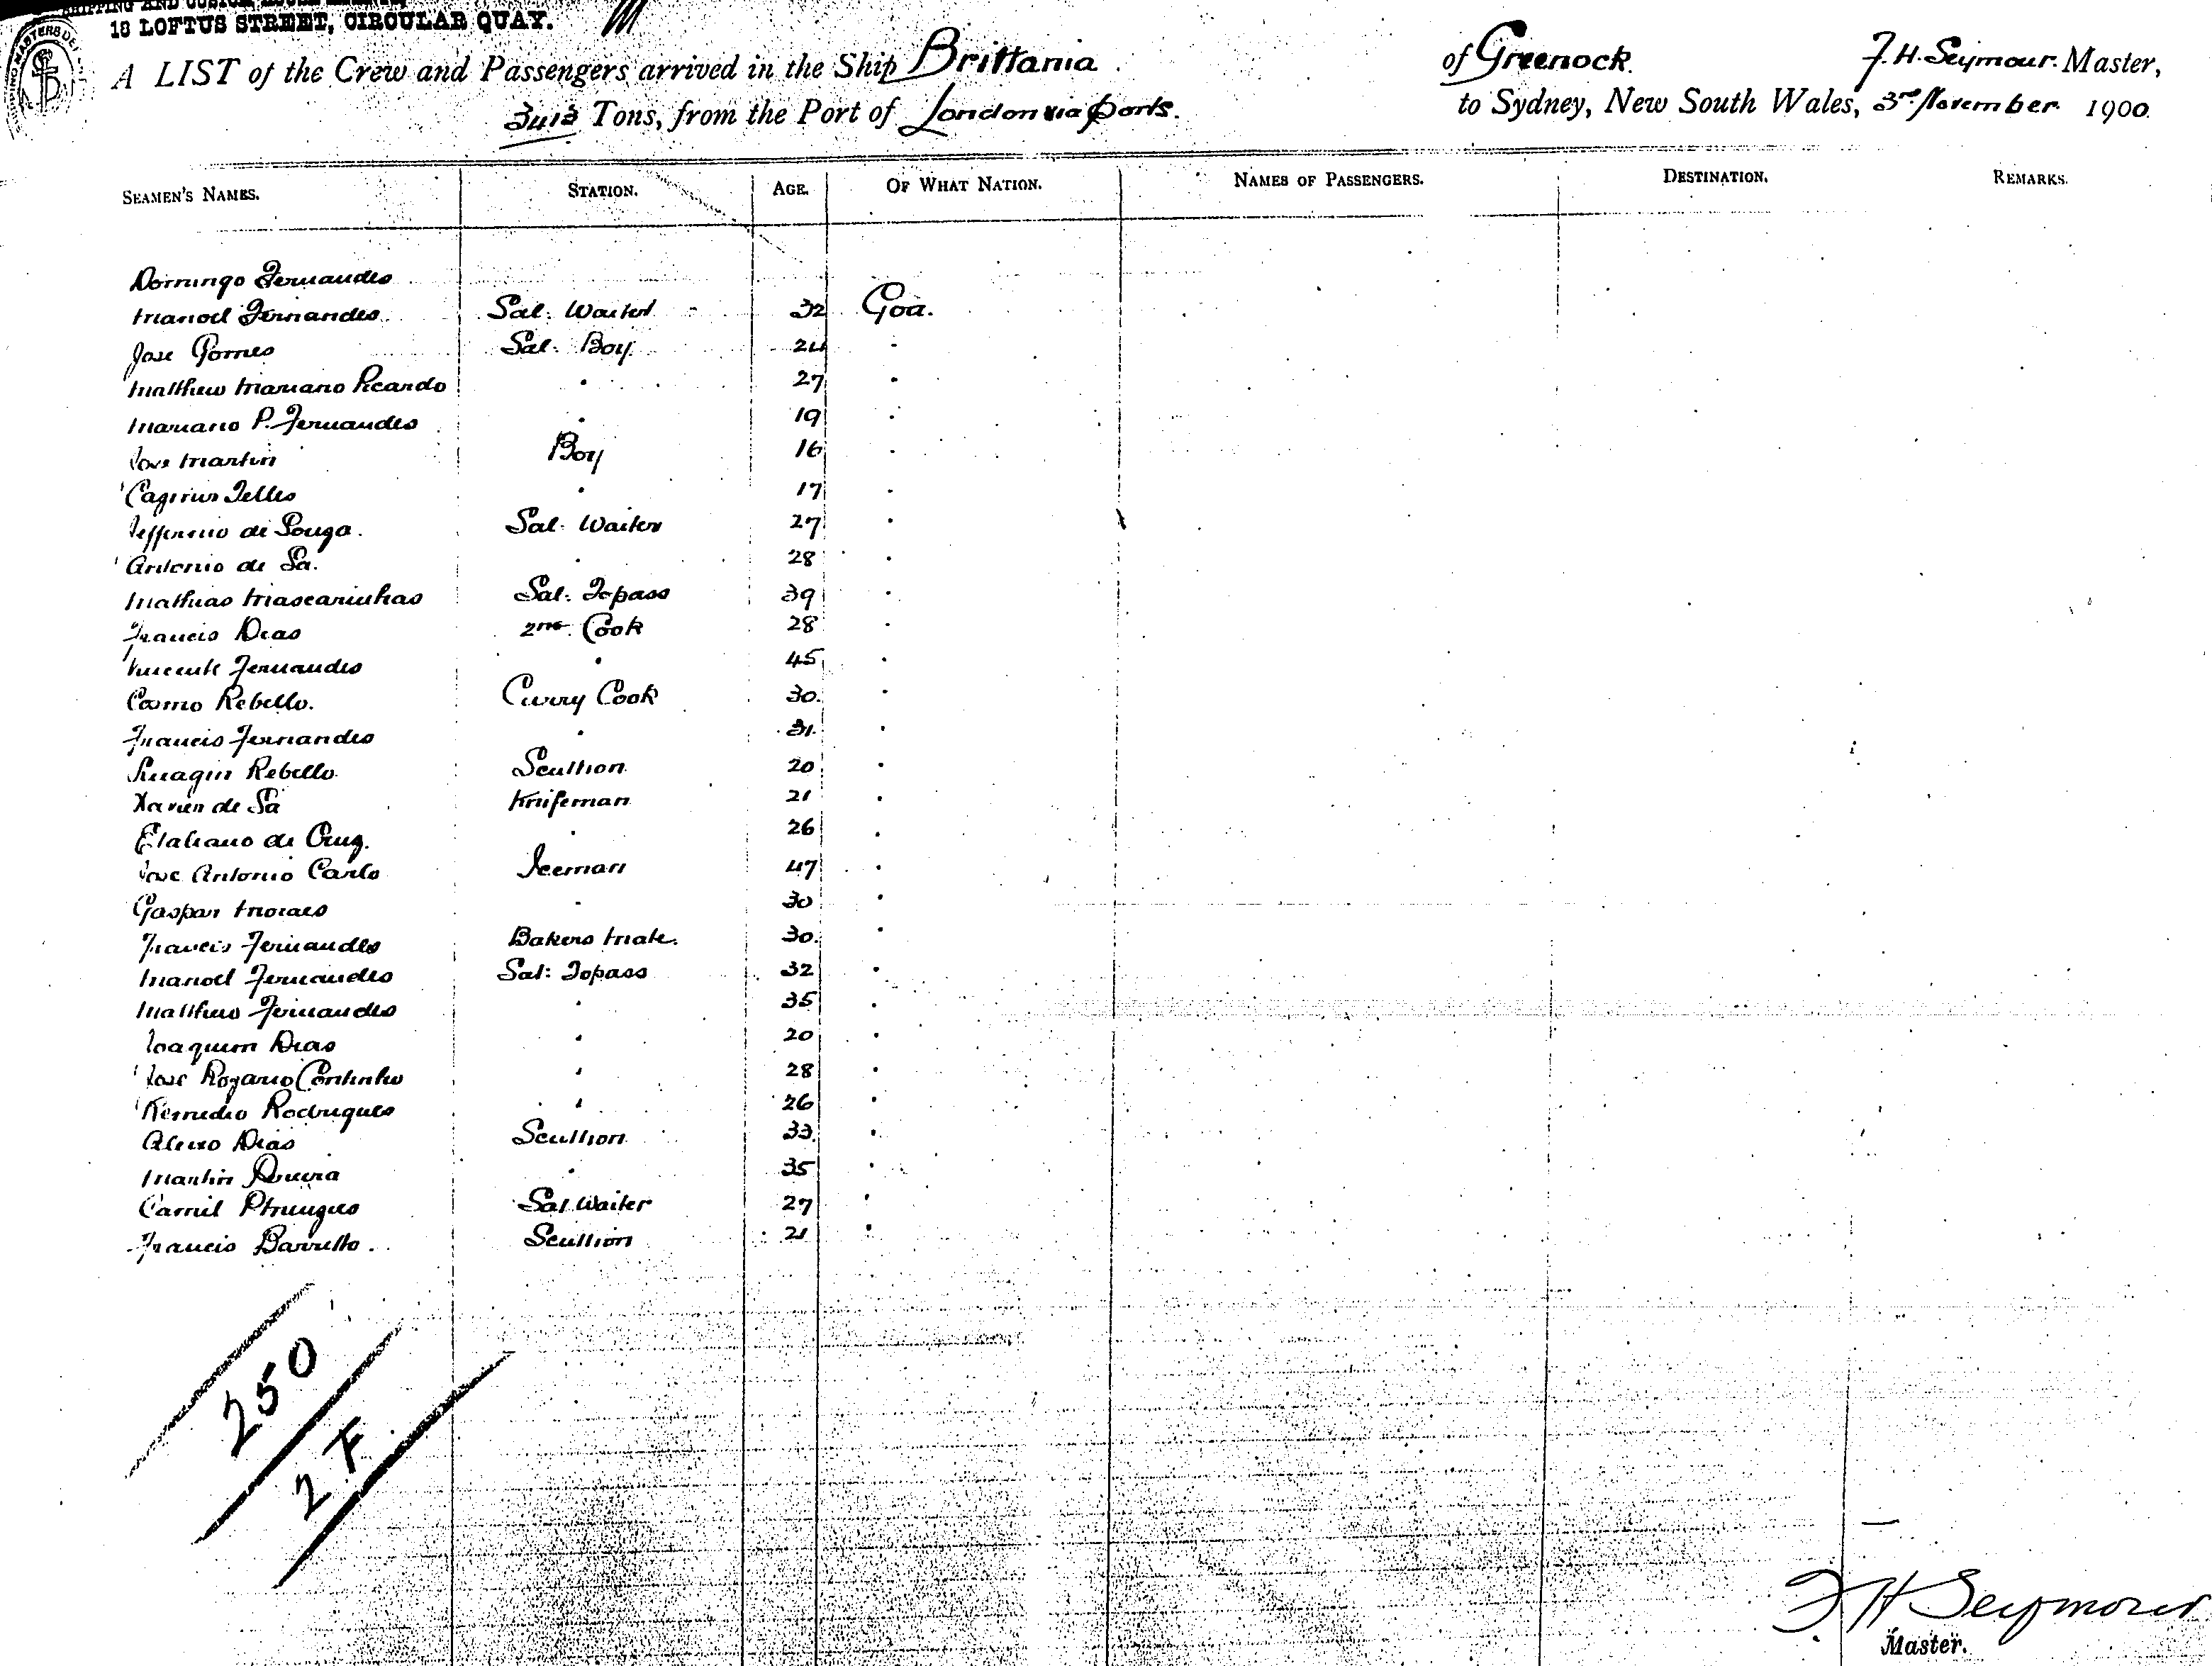 SHIPPING AND CUSTOM
18 LOFTUS STREET, CIRCULAR QUAY.
A LIST of the Crew and Passengers arrived in the Ship Brittania of Greenock. F. H. Seymour. Master,
Tons, from the Port of London via Ports. to Sydney, New South Wales, 3rd November 1900.
SEAMEN'S NAMES. STATION. AGE. OF WHAT NATION. NAMES OF PASSENGERS. DESTINATION. REMARKS.
Domingo Fernandes
Manoel Fernandes Sal: Waiter 32 Goa.
Jose Gomes Sal: Boy 24 "
Matthew Mariano Ricardo " 27 "
Mariano P. Fernandes " 19 "
Jose Martin Boy 16 "
Telles " 17 "
de Souza. Sal: Waiter 27 "
Antonio de Sa. " 28 "
Mathias Mascarinhas Sal: Topass 39 "
Francis Dias 2nd Cook 28 "
Vincente Fernandes " 45 "
Cosmo Rebello. Curry Cook 30 "
Francis Fernandes " 31 "
Rebello Scullion 20 "
Xavier de Sa Knifeman 21 "
de Cruz. " 26 "
Jose Antonio Carlo Iceman 47 "
Gaspar Moraes " 30 "
Francis Fernandes Bakers Mate. 30 "
Manoel Fernandes Sal: Topass 32 "
Matthew Fernandes " 35 "
Joaquim Dias " 20 "
Jose Rozario Continho " 28 "
Remedio Rodrigues " 26 "
Aleixo Dias Scullion 33 "
Martin Pereira " 35 "
Camil Sal Waiter 27 "
Francis Barretto. Scullion 21 "
250
2 F
F H Seymour
Master.